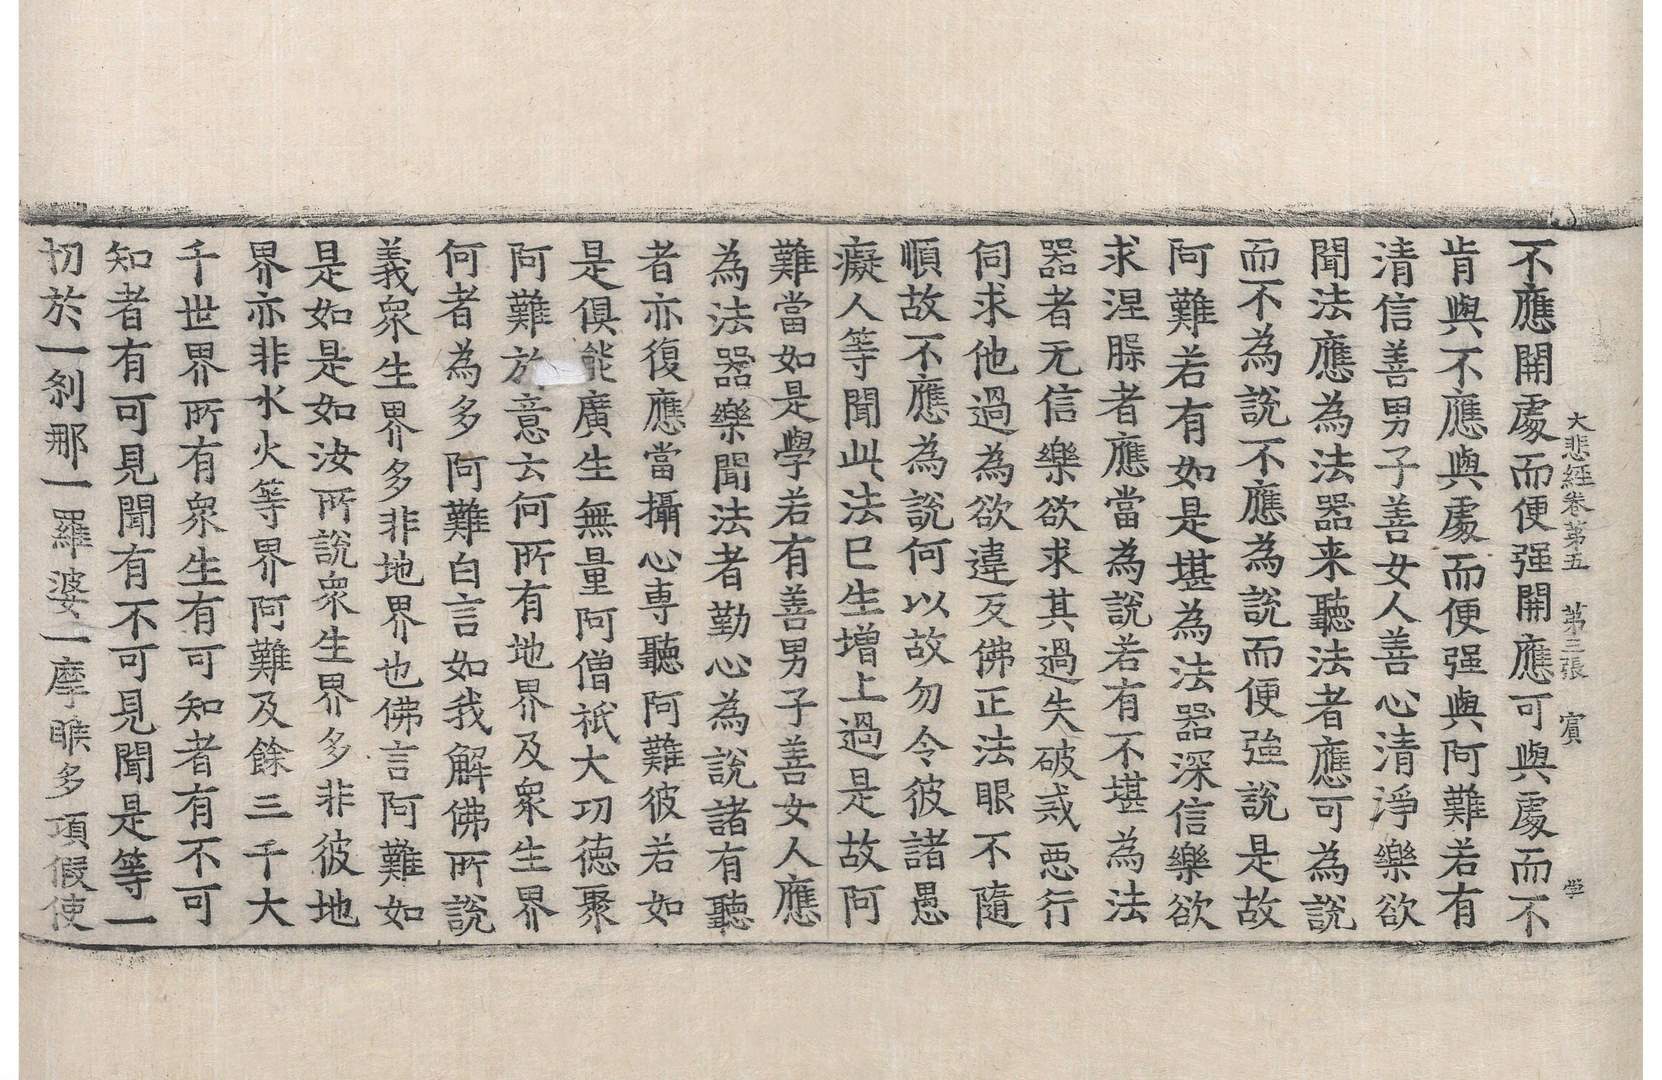 大悲經卷第五　第三張　賓　學
不應開處而便强開應可與處而不
肯與不應與處而便强與阿難若有
清信善男子善女人善心清淨樂欲
聞法應為法器来聽法者應可為說
而不為說不應為說而便強說是故
阿難若有如是堪為法器深信樂欲
求涅槃者應當為說若有不堪為法
器者无信樂欲求其過失破戒惡行
伺求他過為欲違反佛正法眼不隨
順故不應為說何以故勿令彼諸愚
癡人等聞此法已生增上過是故阿
難當如是學若有善男子善女人應
為法器樂聞法者勤心為說諸有聽
者亦復應當攝心專聽阿難彼若如
是俱能廣生無量阿僧祇大功德聚
阿難於意云何所有地界及眾生界
何者為多阿難白言如我解佛所說
義眾生界多非地界也佛言阿難如
是如是如汝所說眾生界多非彼地
界亦非水火等界阿難及餘三千大
千世界所有眾生有可知者有不可
知者有可見聞有不可見聞是等一
切於一刹那一羅婆一摩睺多項假使